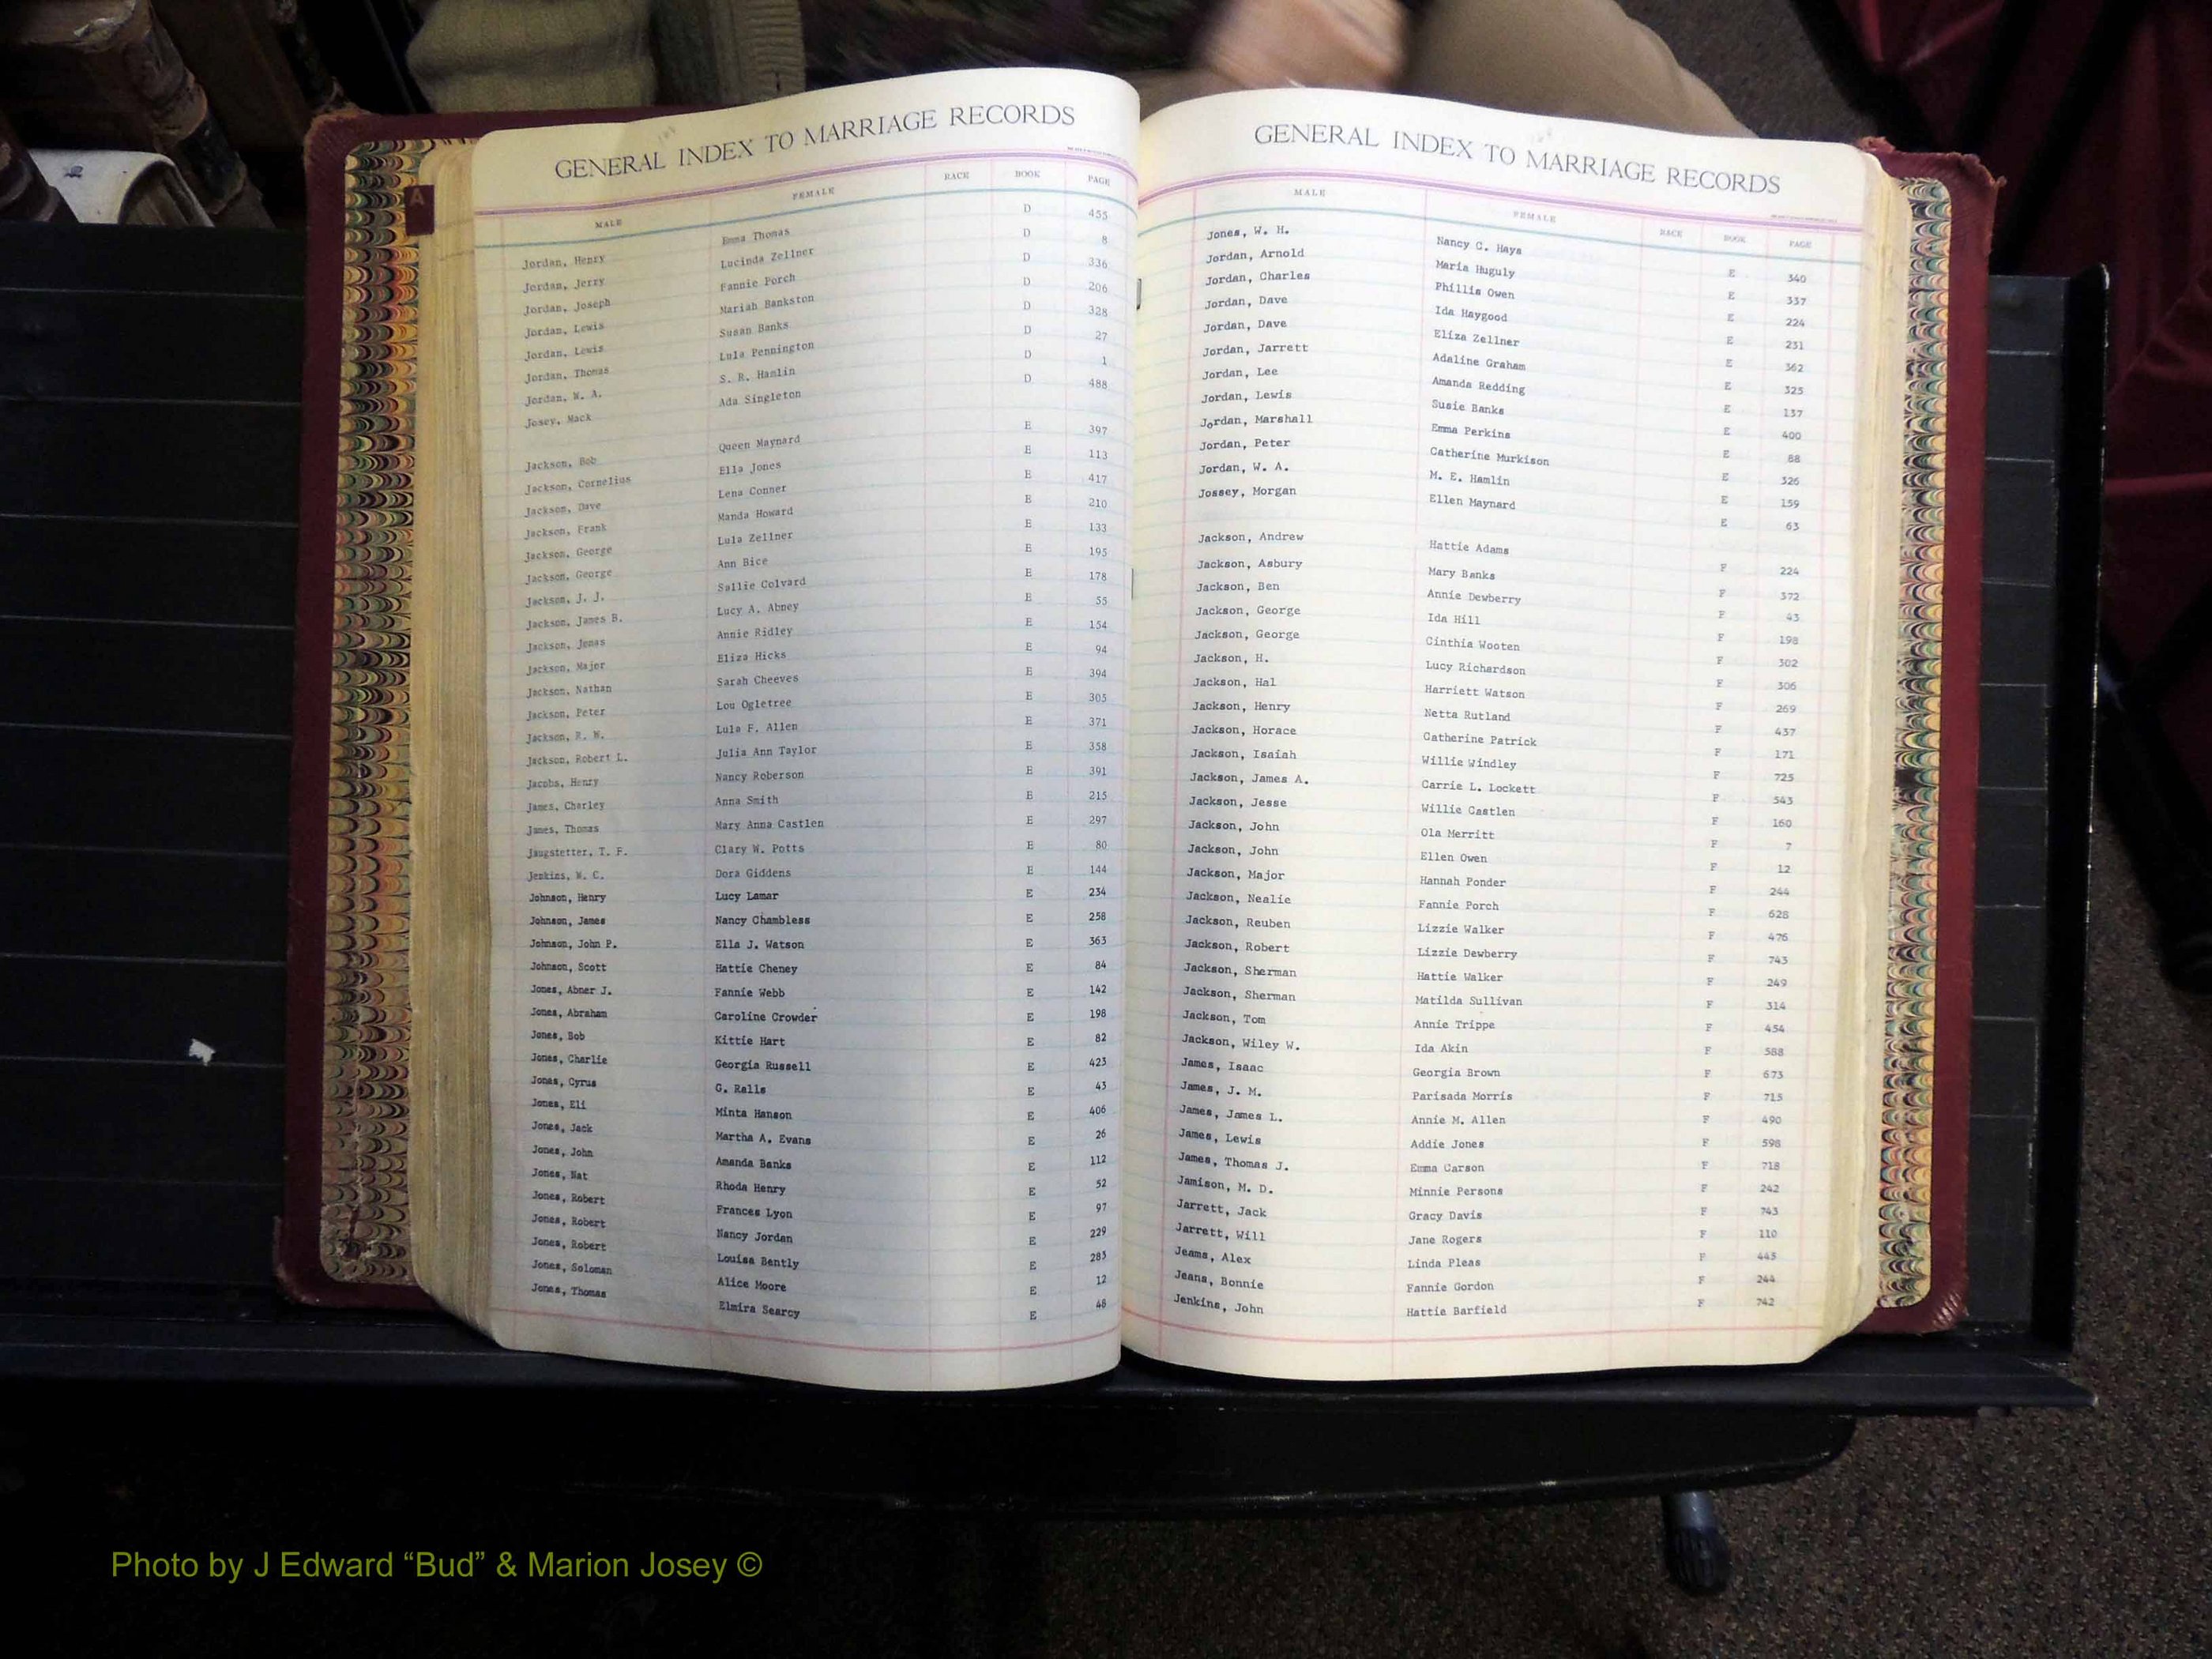 GENERAL INDEX TO MARRIAGE RECORDS
MALE FEMALE RACE BOOK PAGE
Jordan, Henry Emma Thomas D 455
Jordan, Jerry Lucinda Zellner D 8
Jordan, Joseph Fannie Porch D 336
Jordan, Lewis Mariah Bankston D 206
Jordan, Lewis Susan Banks D 328
Jordan, Thomas Lula Pennington D 27
Jordan, W. A. S. R. Hamlin D 1
Josey, Mack Ada Singleton D 488
Jackson, Bob Queen Maynard E 397
Jackson, Cornelius Ella Jones E 113
Jackson, Dave Lena Conner E 417
Jackson, Frank Manda Howard E 210
Jackson, George Lula Zellner E 133
Jackson, George Ann Bice E 195
Jackson, J. J. Sallie Colvard E 178
Jackson, James B. Lucy A. Abney E 55
Jackson, Jonas Annie Ridley E 154
Jackson, Major Eliza Hicks E 94
Jackson, Nathan Sarah Cheeves E 394
Jackson, Peter Lou Ogletree E 305
Jackson, R. W. Lula F. Allen E 371
Jackson, Robert L. Julia Ann Taylor E 358
Jacobs, Henry Nancy Roberson E 391
James, Charley Anna Smith E 215
James, Thomas Mary Anna Castlen E 297
Jaugstetter, T. F. Clary W. Potts E 80
Jenkins, W. C. Dora Giddens E 144
Johnson, Henry Lucy Lamar E 234
Johnson, James Nancy Chambless E 258
Johnson, John P. Ella J. Watson E 363
Johnson, Scott Hattie Cheney E 84
Jones, Abner J. Fannie Webb E 142
Jones, Abraham Caroline Crowder E 198
Jones, Bob Kittie Hart E 82
Jones, Charlie Georgia Russell E 423
Jones, Cyrus G. Ralls E 43
Jones, Eli Minta Hanson E 406
Jones, Jack Martha A. Evans E 26
Jones, John Amanda Banks E 112
Jones, Nat Rhoda Henry E 52
Jones, Robert Frances Lyon E 97
Jones, Robert Nancy Jordan E 229
Jones, Robert Louisa Bently E 283
Jones, Soloman Alice Moore E 12
Jones, Thomas Elmira Searcy E 48
GENERAL INDEX TO MARRIAGE RECORDS
MALE FEMALE RACE BOOK PAGE
Jones, W. H. Nancy C. Hays E 340
Jordan, Arnold Maria Huguly E 337
Jordan, Charles Phillis Owen E 224
Jordan, Dave Ida Haygood E 231
Jordan, Dave Eliza Zellner E 362
Jordan, Jarrett Adaline Graham E 325
Jordan, Lee Amanda Redding E 137
Jordan, Lewis Susie Banks E 400
Jordan, Marshall Emma Perkins E 88
Jordan, Peter Catherine Murkison E 326
Jordan, W. A. M. E. Hamlin E 159
Jossey, Morgan Ellen Maynard E 63
Jackson, Andrew Hattie Adams F 224
Jackson, Asbury Mary Banks F 372
Jackson, Ben Annie Dewberry F 43
Jackson, George Ida Hill F 198
Jackson, George Cinthia Wooten F 302
Jackson, H. Lucy Richardson F 306
Jackson, Hal Harriett Watson F 269
Jackson, Henry Netta Rutland F 437
Jackson, Horace Catherine Patrick F 171
Jackson, Isaiah Willie Windley F 725
Jackson, James A. Carrie L. Lockett F 543
Jackson, Jesse Willie Castlen F 160
Jackson, John Ola Merritt F 7
Jackson, John Ellen Owen F 12
Jackson, Major Hannah Ponder F 244
Jackson, Nealie Fannie Porch F 628
Jackson, Reuben Lizzie Walker F 476
Jackson, Robert Lizzie Dewberry F 743
Jackson, Sherman Hattie Walker F 249
Jackson, Sherman Matilda Sullivan F 314
Jackson, Tom Annie Trippe F 454
Jackson, Wiley W. Ida Akin F 588
James, Isaac Georgia Brown F 673
James, J. M. Parisada Morris F 715
James, James L. Annie M. Allen F 490
James, Lewis Addie Jones F 598
James, Thomas J. Emma Carson F 718
Jamison, M. D. Minnie Persons F 242
Jarrett, Jack Gracy Davis F 743
Jarrett, Will Jane Rogers F 110
Jeams, Alex Linda Pleas F 443
Jeana, Bonnie Fannie Gordon F 244
Jenkins, John Hattie Barfield F 742
A
Photo by J Edward “Bud” & Marion Josey ©